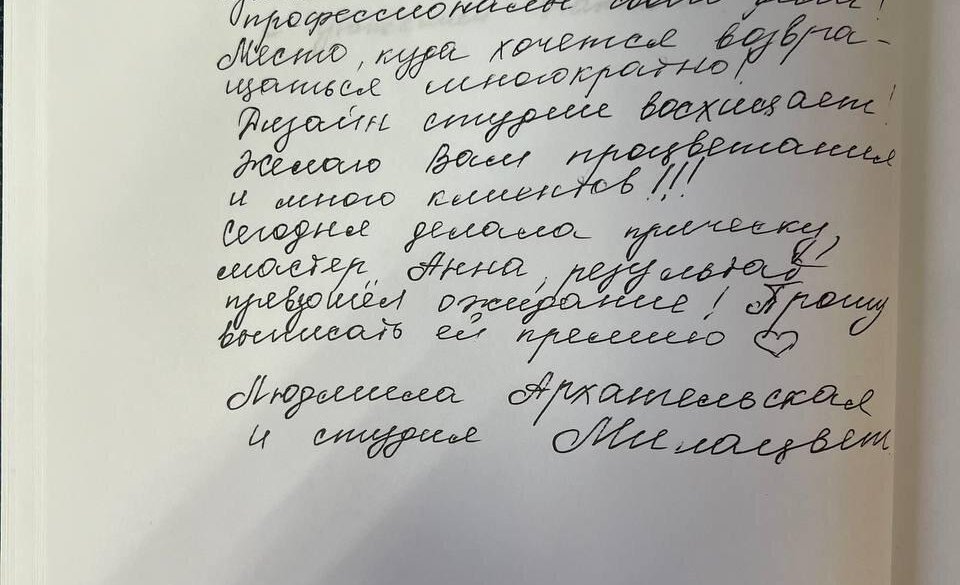 профессионалы своего дела!
Место, куда хочется возвра-
щаться многократно!
Дизайн студии восхищает!
Желаю Вам процветания
и много клиентов!!!
Сегодня делала прическу,
мастер Анна, результат
превзошёл ожидание! Прошу
выписать ей премию ♡
Людмила Архангельская
и студия Милацвет